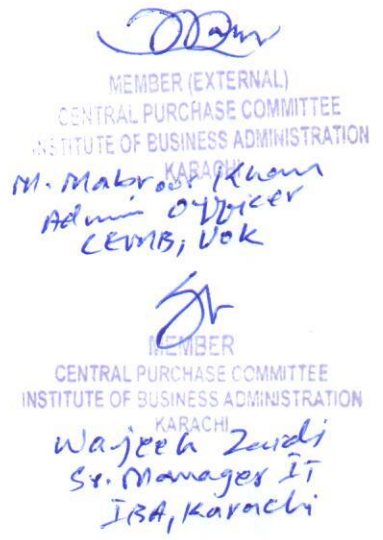 MEMBER (EXTERNAL)
CENTRAL PURCHASE COMMITTEE
INSTITUTE OF BUSINESS ADMINISTRATION
KARACHI
M. Mabroor Khan
Admin Officer
CEMB, UoK
MEMBER
CENTRAL PURCHASE COMMITTEE
INSTITUTE OF BUSINESS ADMINISTRATION
KARACHI
Wajeeh Zaidi
Sr. Manager IT
IBA, Karachi